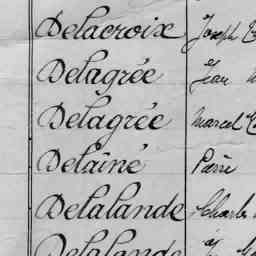 Delacroix Joseph
Delagrée Jean
Delagrée Marcel
Delaîné Pierre
Delalande Charles
Delalande